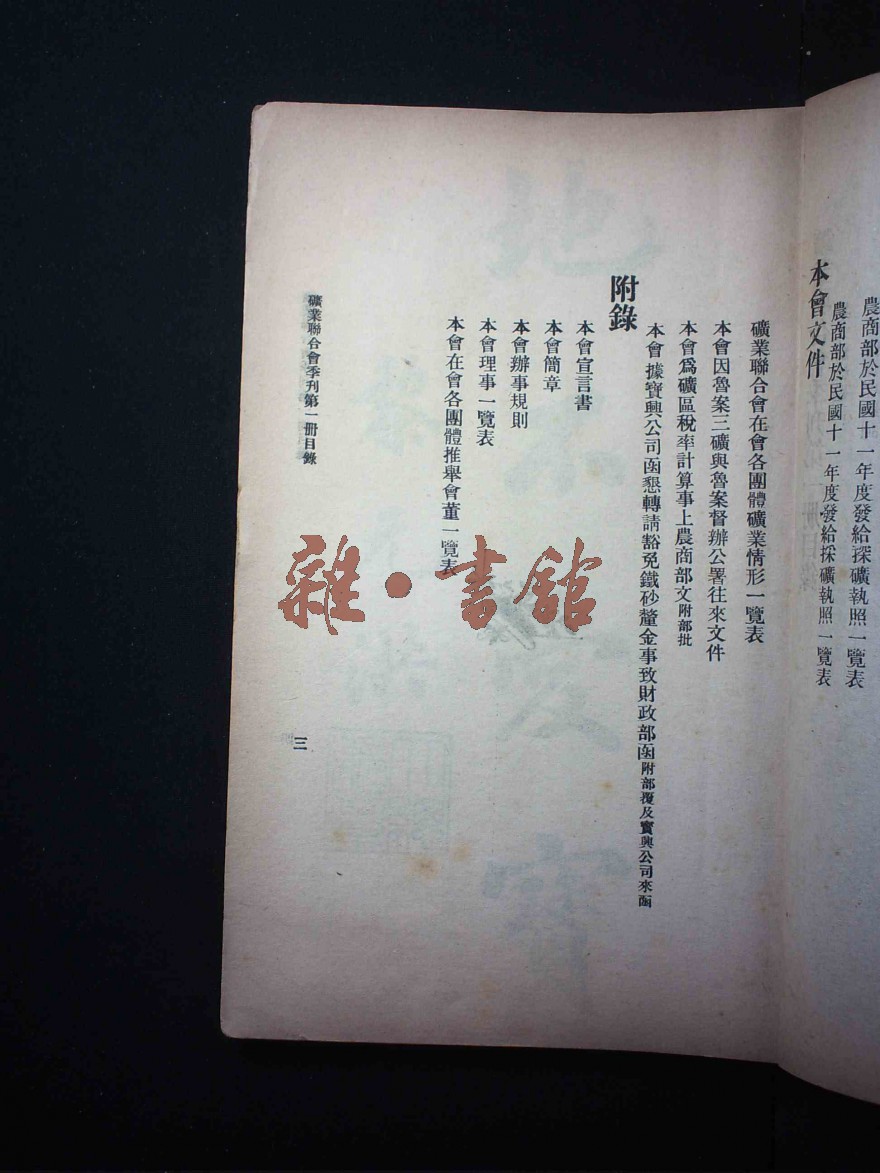 農商部於民國十一年度發給探礦執照一覽表
農商部於民國十一年度發給採礦執照一覽表
本會文件
礦業聯合會在會各團體礦業情形一覽表
本會因魯案三礦與魯案督辦公署往來文件
本會爲礦區稅率計算事上農商部文附部批
本會據寶興公司函懇轉請豁免鐵砂釐金事致財政部函附部覆及寶興公司來函
附錄
本會宣言書
本會簡章
本會辦事規則
本會理事一覽表
本會在會各團體推舉會董一覽表
礦業聯合會季刊第一冊目錄
三
雜·書館